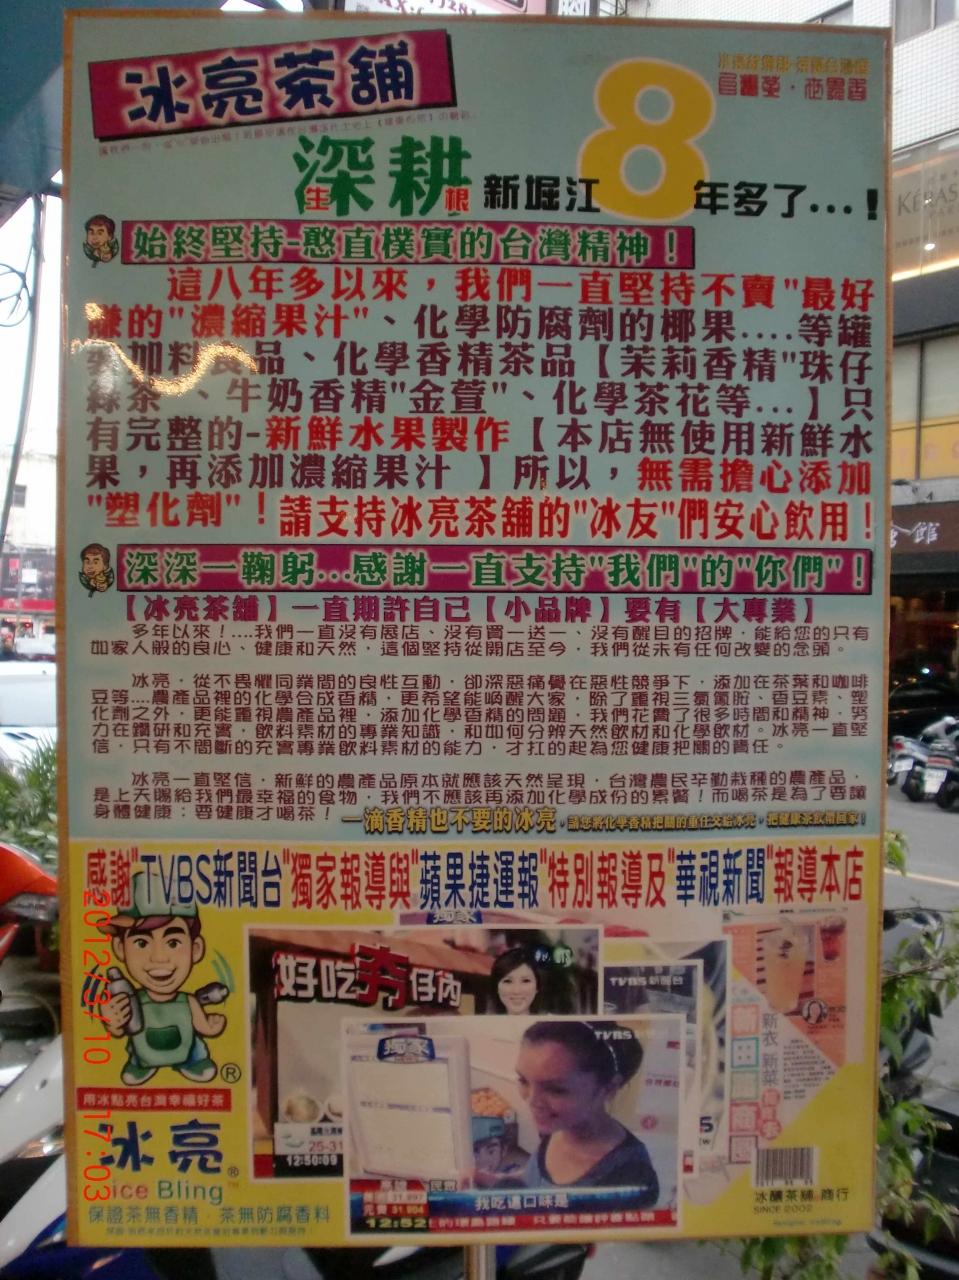 冰亮茶舖
深耕 新堀江8年多了...!
生 根
始終堅持-憨直樸實的台灣精神！
這八年多以來，我們一直堅持不賣"最好
賺的"濃縮果汁"、化學防腐劑的椰果....等罐
加料食品、化學香精茶品【茉莉香精"珠仔
綠茶"、牛奶香精"金萱"、化學茶花等...】只
有完整的-新鮮水果製作【本店無使用新鮮水
果，再添加濃縮果汁】所以，無需擔心添加
"塑化劑"！請支持冰亮茶舖的"冰友"們安心飲用！
深深一鞠躬...感謝一直支持"我們"的"你們"！
【冰亮茶舖】一直期許自己【小品牌】要有【大專業】
多年以來！....我們一直沒有展店、沒有買一送一、沒有醒目的招牌，能給您的只有
如家人般的良心、健康和天然，這個堅持從開店至今，我們從未有任何改變的念頭。
冰亮，從不畏懼同業間的良性互動，卻深惡痛覺在惡性競爭下，添加在茶葉和咖啡
豆等....農產品裡的化學合成香精，更希望能喚醒大家，除了重視三氯氰胺、香豆素、塑
化劑之外，更能重視農產品裡，添加化學香精的問題，我們花費了很多時間和精神，努
力在鑽研和充實，飲料素材的專業知識，和如何分辨天然飲材和化學飲材。冰亮一直堅
信，只有不間斷的充實專業飲料素材的能力，才扛的起為您健康把關的責任。
冰亮一直堅信，新鮮的農產品原本就應該天然呈現，台灣農民辛勤栽種的農產品，
是上天賜給我們最幸福的食物，我們不應該再添加化學成份的素材！而喝茶是為了要讓
身體健康：要健康才喝茶！一滴香精也不要的冰亮，請您將化學香精把關的重任交給冰亮，把健康茶飲帶回家！
感謝"TVBS新聞台"獨家報導與"蘋果捷運報"特別報導及"華視新聞"報導本店
獨家
好吃夯仔內
TVBS 新聞台
獨家
TVBS
25-31
12:50:09
31,897
31,904
12:52
我吃這口味是
新衣 新菜
®
用冰點亮台灣幸福好茶
冰亮®
ice Bling™
保證茶無香精．茶無防腐香料
冰釀茶舖 商行
SINCE 2002
KÉRAS
館
2012/3/10 17:03